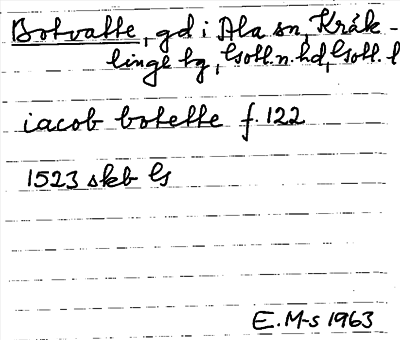 Botvatte, gd i Ala sn, Kräk-
linge tg, Gotl.n.hd, Gotl. l
iacob botette f. 122
1523 skb G
E.M-s 1963